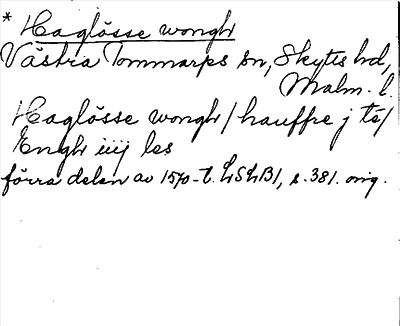 * Haglösse wongh
Västra Tommarps sn, Skytts hd,
Malm. l.
Haglösse wongh / hauffre j té/
Engh iiij les
förra delen av 1570-t. LSLB1, s. 381. orig.